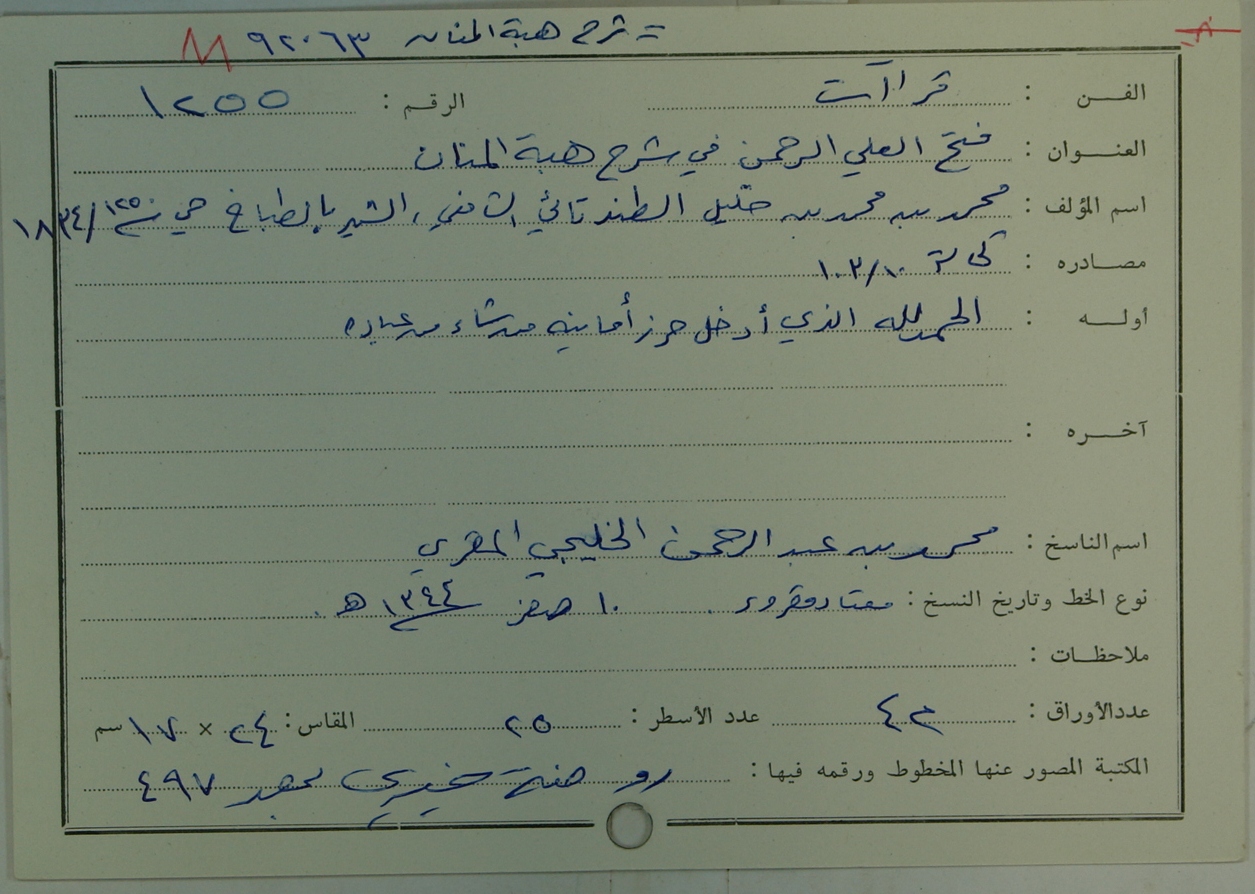 = شرح هبة المنان ٩٢٠٦٣ M
الفـن : قراآت الرقـم : ١٢٥٥
العنـوان : فتح العلي الرحمن في شرح هبة المنان
اسم المؤلف : محمد بن محمد بن خليل الطندتائي الشافعي ، الشهير بالطباخ حي ١٢٥٠/١٨٣٤
مصـادره : ١٠٣/١٠
أولـه : الحمد لله الذي أدخل حرز أمانيه من شاء من عباده
آخـره :
اسم الناسخ : محمد بن عبد الرحمن الخليجي المقري
نوع الخط وتاريخ النسخ : معتاد مقروء ١٠ صفر ١٣٤٤ هـ .
ملاحظـات :
عدد الأوراق : ٤٢ عدد الأسطر : ٢٥ المقاس : ٢٤ × ١٧ سم
المكتبة المصور عنها المخطوط ورقمه فيها : روضة خيري بمصر ٤٩٧